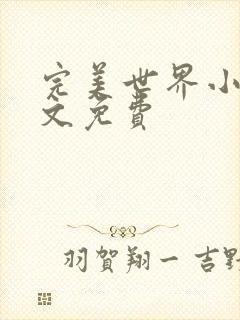 完美世界小
文免费
羽賀翔一 吉野